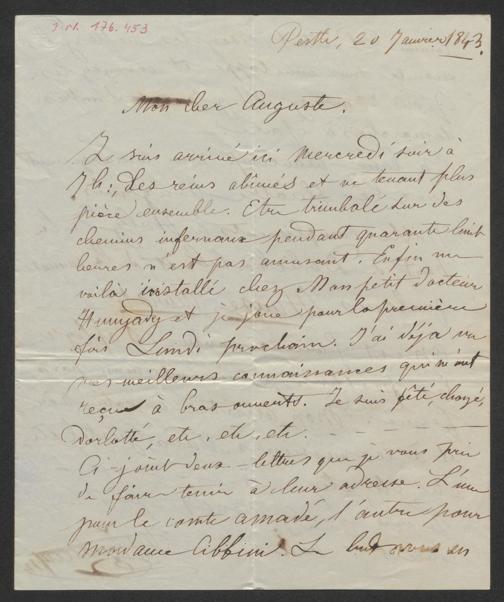 J. N. 176.453
Pesth, 20 Janvier 1843.
Mon cher Auguste.
Je suis arrivé ici Mercredi soir à
7h:, Les reins abîmés et ne tenant plus
pièce ensemble. Etre trimbalé sur des
chemins infernaux pendant quarante huit
heures n'est pas amusant. Enfin me
voilà installé chez Mon petit docteur
Hunyady et je joue pour la première
fois Lundi prochain. J'ai déja vu
mes meilleurs connaissances qui m'ont
reçu à bras ouverts. Je suis fêté, choyé,
dorlotté, etc. etc. etc.
Ci-joint deux lettres que je vous prie
de faire tenir à leur adresse. L'une
pour le comte Amadé, l'autre pour
Madame Cibbini. Le but vous en